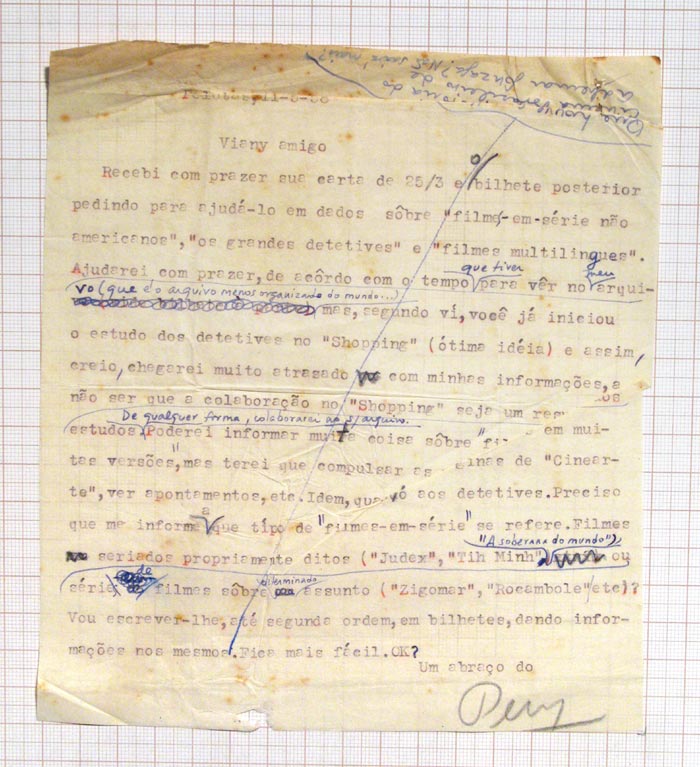 Que houve c/o dicionário do
cinema brasileiro de
Adhemar Gonzaga? Não saiu mais?
Pelotas, 11-
Viany amigo
Recebi com prazer sua carta de 25/3 e o bilhete posterior
pedindo para ajudá-lo em dados sôbre "films-em-série não
americanos","os grandes detetives" e "filmes multilingues".
Ajudarei com prazer,de acôrdo com o tempo que tiver para vêr no meu arqui-
vo (que é o arquivo menos organizado do mundo...)
mas,segundo ví,você já iniciou
o estudo dos detetives no "Shopping" (ótima idéia) e assim,
creio,chegarei muito atrasado com minhas informações,a
não ser que a colaboração no "Shopping" seja um dos
De qualquer forma, colaborarei c/ s/ arquivo.
estudos. Poderei informar muita coisa sôbre "fi em mui-
tas versões",mas terei que compulsar as ginas de "Cinear-
te",ver apontamentos,etc.Idem,quanto aos detetives.Preciso
que me informe a que típo de "filmes-em-série" se refere.Filmes
seriados propriamente ditos ("Judex","Tih Minh", "A soberana do mundo") ou
série de filmes sôbre determinado assunto ("Zigomar","Rocambole"etc)?
Vou escrever-lhe,até segunda ordem,em bilhetes,dando infor-
mações nos mesmos.Fica mais fácil.OK?
Um abraço do
Pery